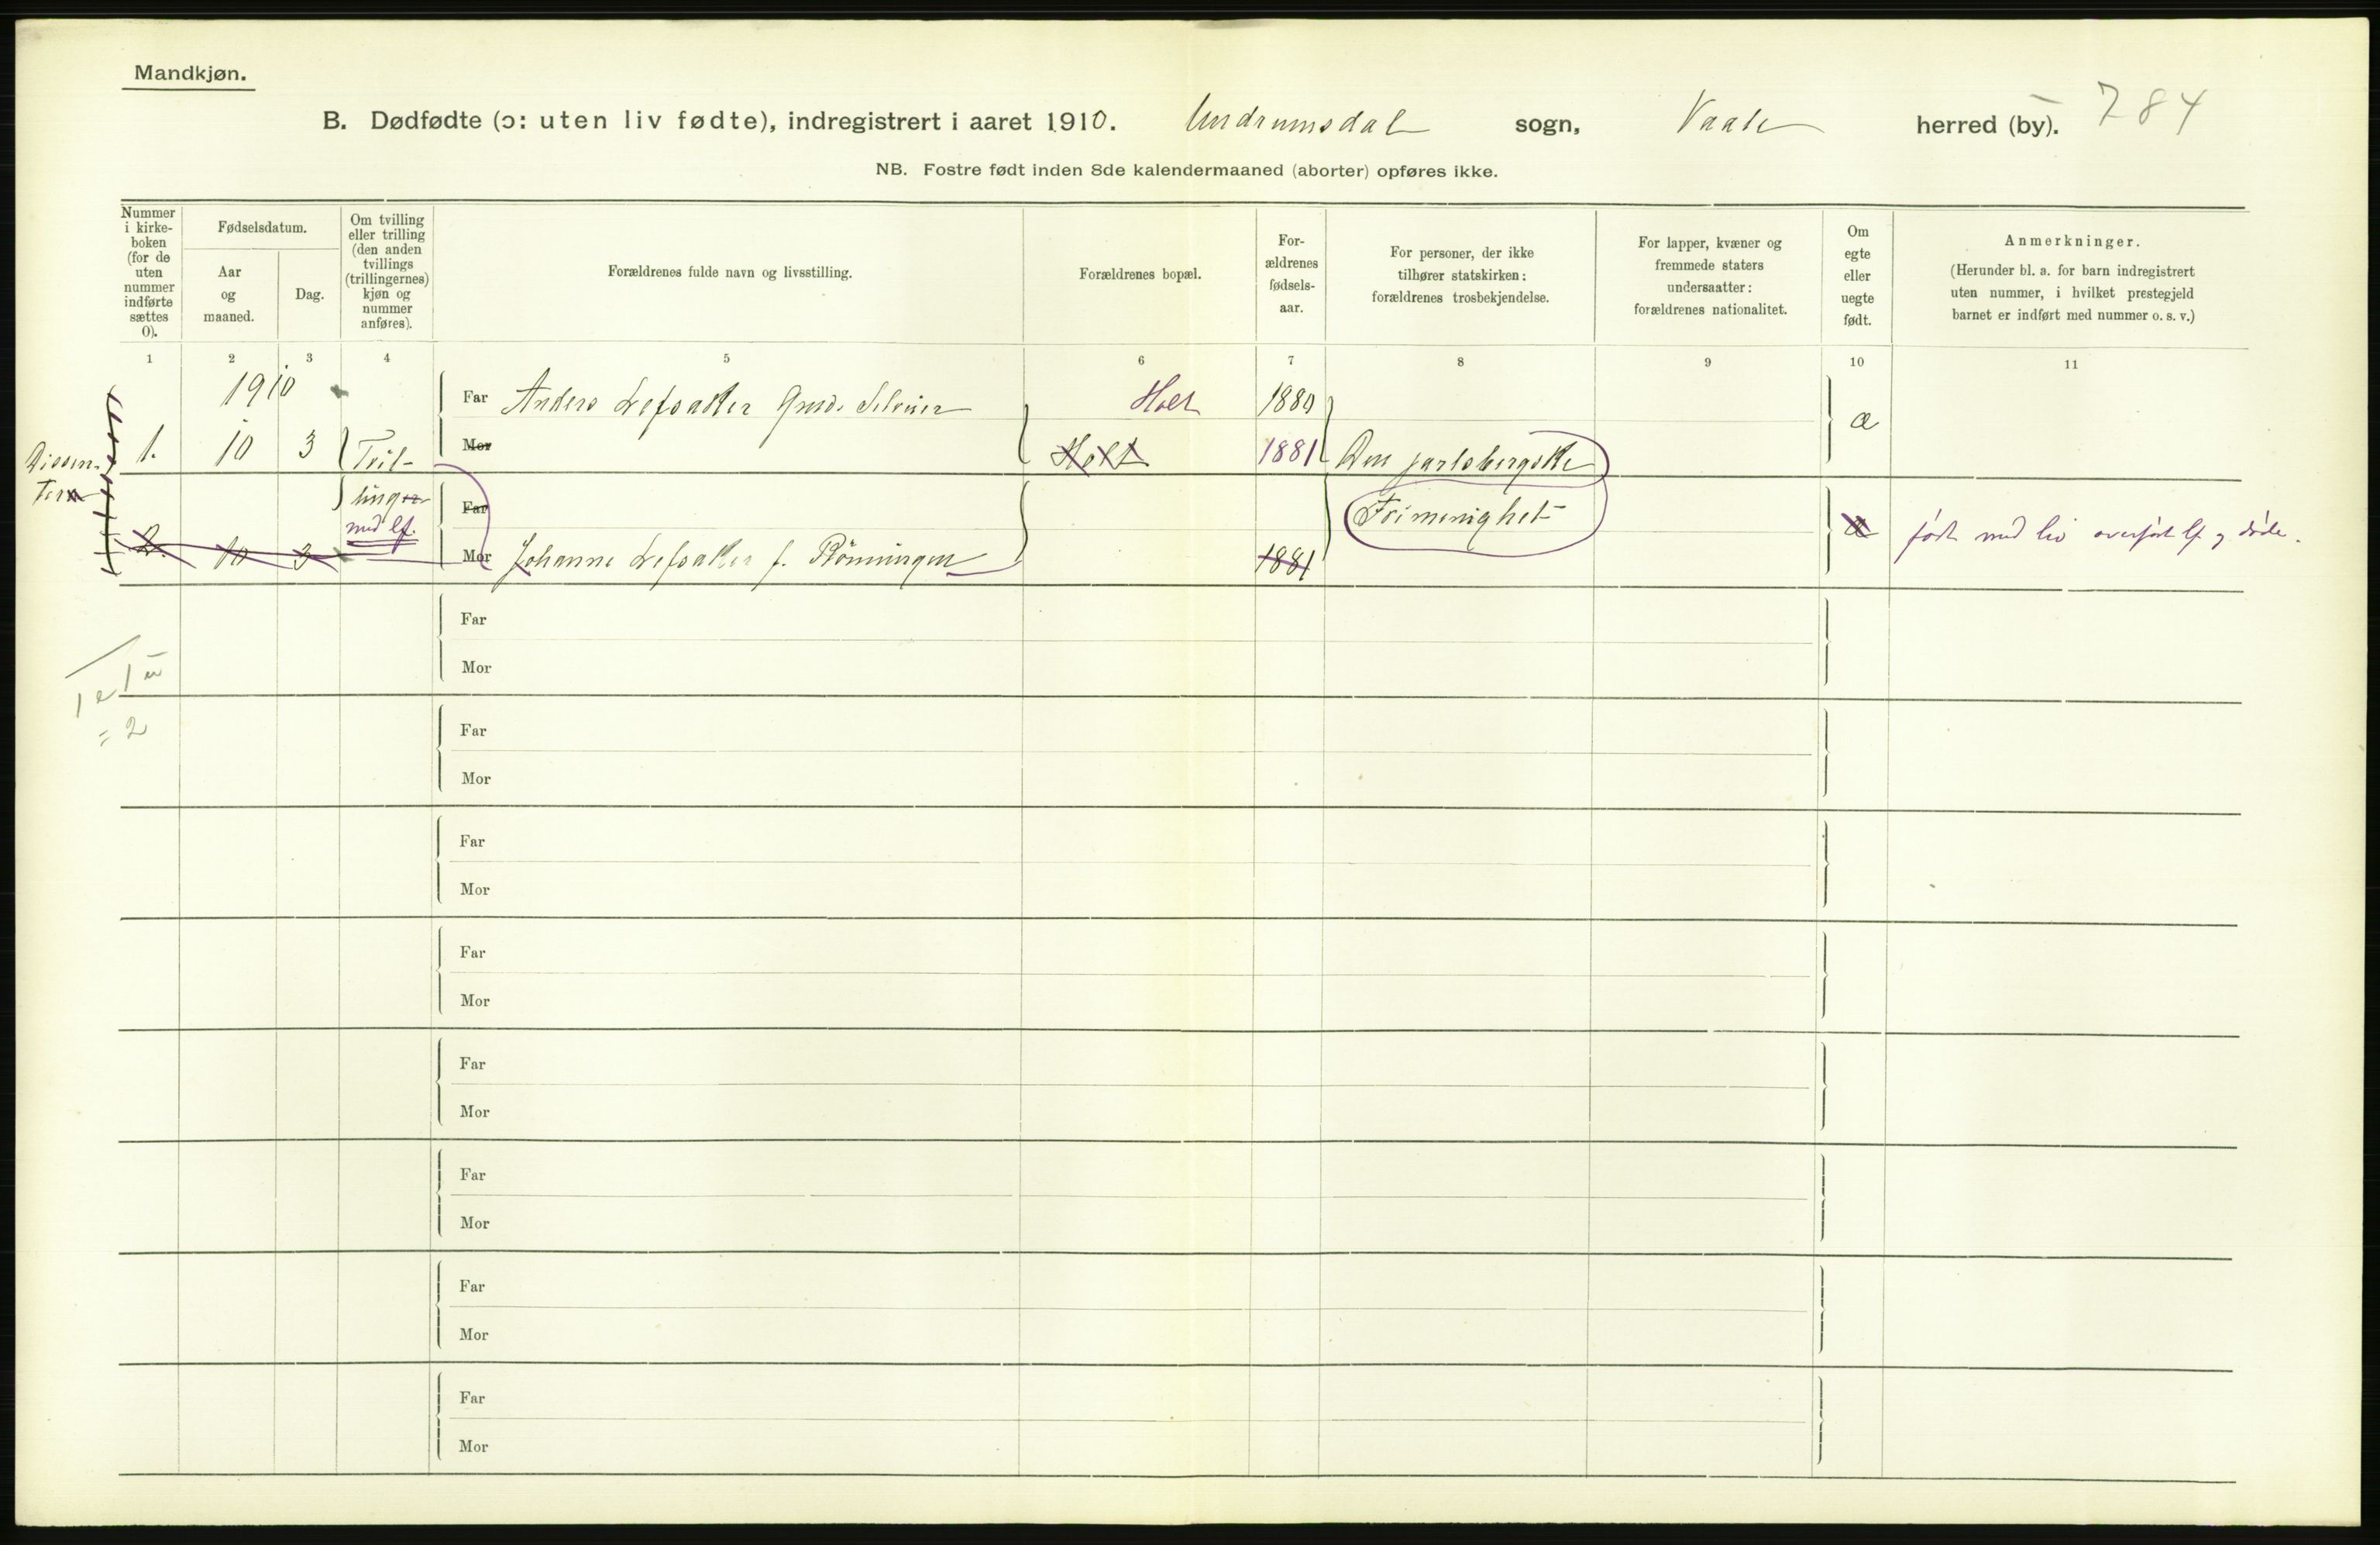 Mandkjøn.
B. Dødfødte (ɔ: uten liv fødte), indregistrert i aaret 1910. Undrumsdal sogn, Vaale herred (by). 784
NB. Fostre født inden 8de kalendermaaned (aborter) opføres ikke.
Nummer
i kirke-
boken
(for de
uten
nummer
indførte
sættes
0).
Fødselsdatum.
Aar
og
maaned.
Dag.
Om tvilling
eller trilling
(den anden
tvillings
(trillingernes)
kjøn og
nummer
anføres).
Forældrenes fulde navn og livsstilling.
Forældrenes bopæl.
For-
ældrenes
fødsels-
aar.
For personer, der ikke
tilhører statskirken:
forældrenes trosbekjendelse.
For lapper, kvæner og
fremmede staters
undersaatter:
forældrenes nationalitet.
Om
egte
eller
uegte
født.
Anmerkninger.
(Herunder bl. a. for barn indregistrert
uten nummer, i hvilket prestegjeld
barnet er indført med nummer o. s. v.)
1 2 3 4 5 6 7 8 9 10 11
1910 Far Anders Lefsaker Holt 1880 æ
Dissen- 1. 10 3 Tvil- Mor Holt 1881 Den jarlsbergske
ter
linger Far Frimenighet
med lf.
2. 10 3 Mor Johanne Lefsaker f. Rønningen 1881 æ født med liv overført lf og døde.
Far
Mor
1 e 1 u
= 2
Far
Mor
Far
Mor
Far
Mor
Far
Mor
Far
Mor
Far
Mor
Far
Mor